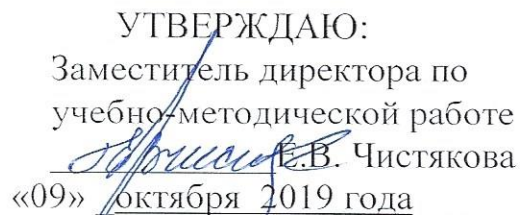 УТВЕРЖДАЮ:
Заместитель директора по
учебно-методической работе
Е.В. Чистякова
«09» октября 2019 года